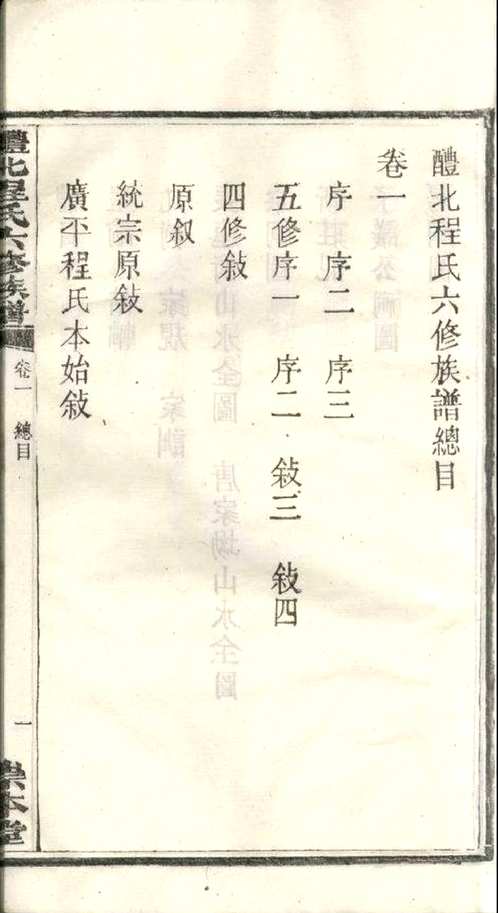 醴北程氏六修族譜總目
卷一
序 序二 序三
五修序一 序二 敍三 敍四
四修敍
原叙
統宗原敍
廣平程氏本始敍
醴北程氏六修族譜
卷一 總目
一
崇本堂